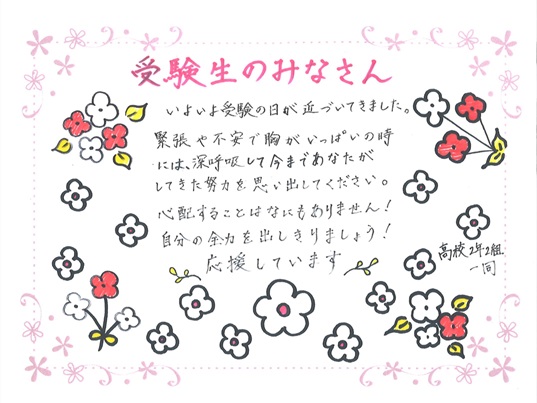 受験生のみなさん
いよいよ受験の日が近づいてきました。
緊張や不安で胸がいっぱいの時
には、深呼吸して今まであなたが
してきた努力を思い出してください。
心配することはなにもありません！
自分の全力を出しきりましょう！
応援しています
高校2年2組
一同